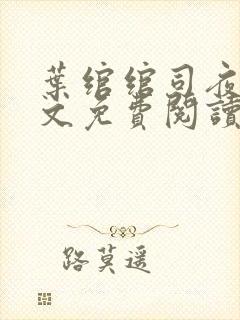 葉綰綰司夜
文免費閱讀
路莫遥